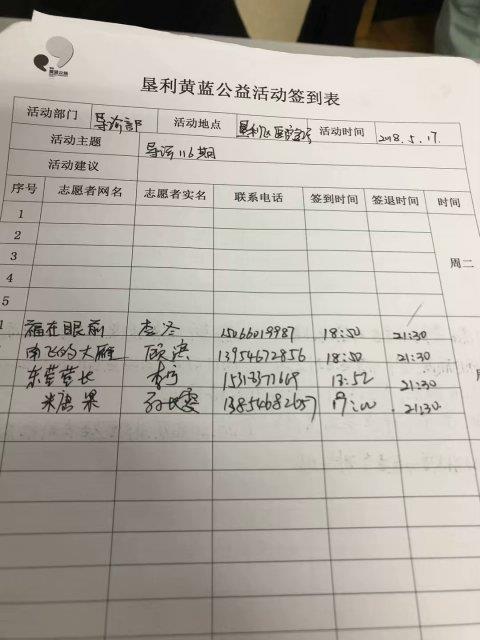 垦利黄蓝公益活动签到表
活动部门 导诊部 活动地点 活动时间 2018.5.17.
活动主题 导诊116期
活动建议
序号 志愿者网名 志愿者实名 联系电话 签到时间 签退时间 时间
1
2
3 周二
4
5
1 福在眼前 15066019987 18:50 21:30
南飞的大雁 13954672856 18:50 21:30
东营营长 13:52 21:30
米唐果 21:30